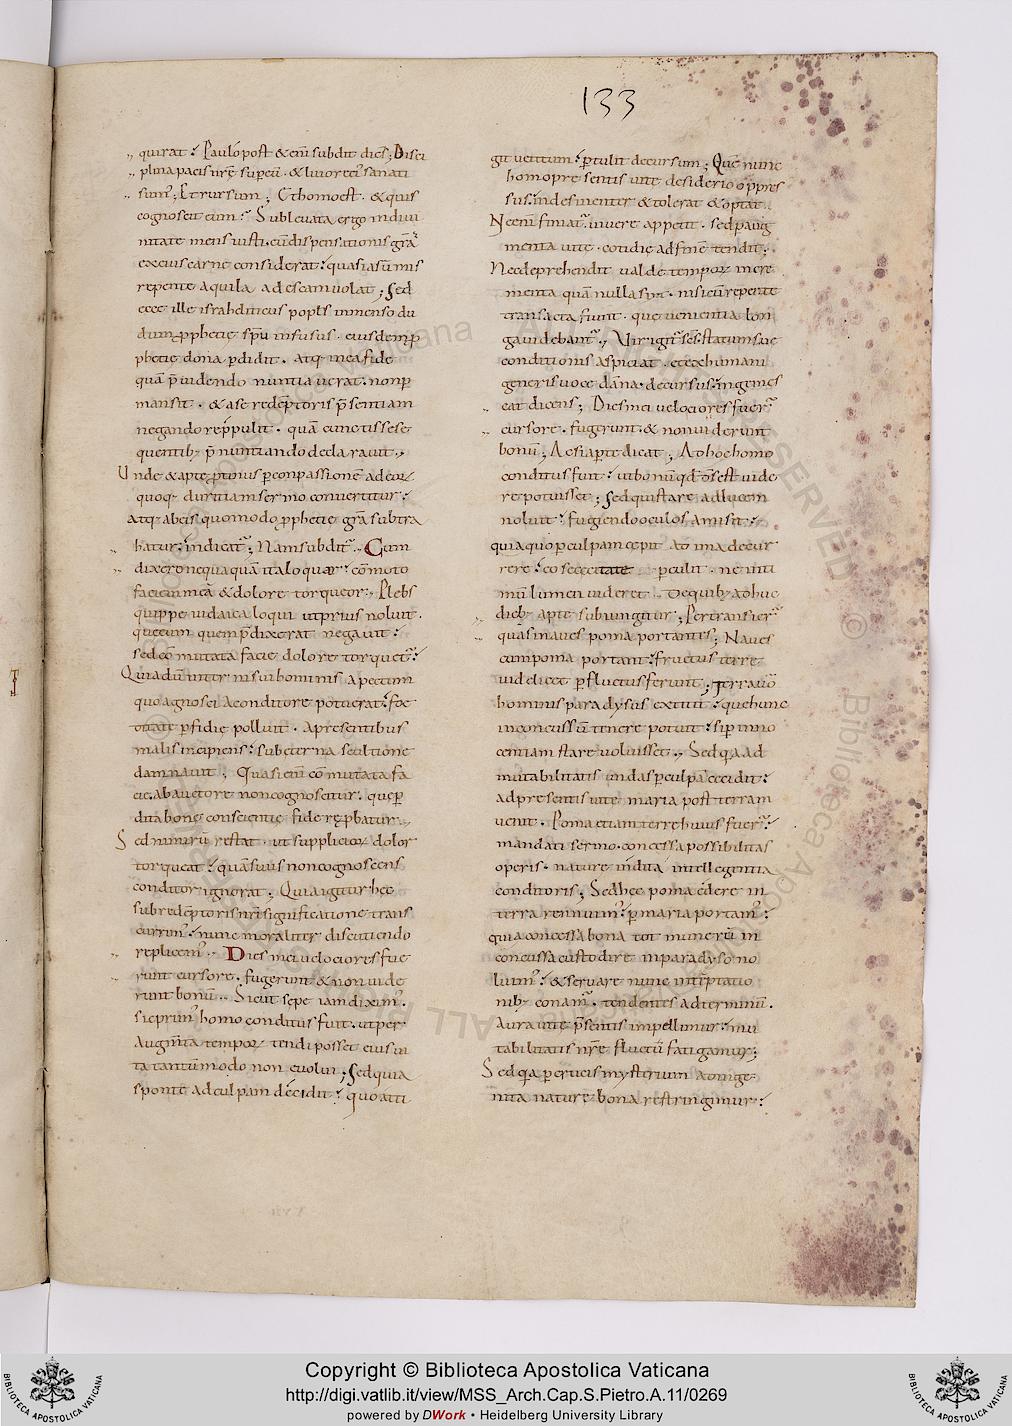 133
quirat. Paulo post & eni subdit dicens; Disci
plina pacis nr̃e sup eũ. & livore ei' sanati
sum'; Et rursum; Et homo est. & quis
cognoscit eum. Sublevata ergo in divi
nitate mens iusti. cũ dispensationis grã
ex eius carne considerat. quasi asũmis
repente aquila ad escam volat; Sed
ecce ille israheliticus popl's inmenso du
dum pphetie spũ infusus. eiusdem p
phetie dona pdidit. atq; in ea fide
quã p̃videndo nuntiaverat. non p
mansit. & a se redẽptoris p̃sentiam
negando reppulit. quã cunctis se se
quentib; p̃nuntiando declaravit.
Unde & apte p̃tinus p cõnpassionẽ ad eoȝ
quoq; duritiam sermo convertitur.
Atq; ab eis quomodo pphetie grã subtra
hatur. indicat'; Nam subdit'. Cum
dixero nequaquã ita loquar. cõmoto
faciẽ meã & dolore torqueor. Plebs
quippe iudaica loqui ut prius noluit.
que eum quem p̃dixerat negavit.
sed cõmutata facie dolore torquet'.
Quia dũ interni sui hominis aspectum
quo agnosci a conditore poterat. foe
ditate pfidie polluit. a presentibus
malis incipiens. sub eterna se ultione
damnavit; Quasi eni cõmutata fa
cie. ab auctore non cognoscitur. que p
ditã bone conscientie fide repbatur.
Sed nimirũ restat. ut supplicioȝ dolor
torqueat. quã suus non cognoscens
conditor ignorat; Quia igitur hec
sub redẽptoris nr̃i significatione trans
currim'. nunc moraliter discutiendo
replicem'. Dies mei velociores fue
runt cursore. fugerunt & non vide
runt bonũ. Sicut sepe iam dixim'.
sic prim' homo conditus fuit. ut per
augmta tempoȝ tendi posset eius vi
ta tantũmodo non evolvi; Sed quia
sponte ad culpam decidit. quo atti
git vetitum. ptulit decursum; Quẽ nunc
homo presentis vite desiderio oppres
sus. indesinenter & tolerat & optat.
Ne eni finiat'. vivere appetit. sed p aug
menta vite. cotidie ad finẽ tendit;
Nec deprehendit valde tempoȝ incre
menta quã nulla sint. nisi cũ repente
transacta fiunt. que venientia lon
ga videbant'. Vir igit' sc̃s. statum sue
conditionis aspiciat. et ex humani
generis voce dãna decursus. ingemes
cat dicens; Dies mei velociores fuer'
cursore. fugerunt. & non viderunt
bonũ; Ac si apte dicat; Ad hoc homo
conditus fuit. ut bonũ qd d's est vide
re potuisset; Sed qui stare ad lucem
noluit. fugiendo oculos amisit.
quia quo p culpam cepit ad ima decur
rere. eo se cecitate pculit. ne inti
mũ lumen videret. De quib; adhuc
dieb; apte subiungitur; Pertransier'
quasi naves poma portantes; Naves
cum poma portant. fructus terre
videlicet p fluctus ferunt; Terra vo
hominis paradysus extitit. que hunc
inconcussũ tenere potuit. si p inno
centiam stare voluisset. Sed q̃a ad
mutabilitatis undas p culpã cecidit.
ad presentis vite maria post terram
venit. Poma etiam terre huius fuer'.
mandati sermo. concessa possibilitas
operis. nature indita intellegentia
conditoris; Sed hec poma edere in
terra rennuim'. p maria portam';
quia concessa bona tot munerũ in
concussa custodire in paradyso no
luim'. & servare nunc in temptatio
nib; conam'. tendentes ad terminũ.
Aura vite p̃sentis impellimur. mu
tabilitatis nr̃e fluctũ fatigamur;
Sed q̃a p crucis mysterium a donige
nita nature bona restringimur.
Copyright © Biblioteca Apostolica Vaticana
http://digi.vatlib.it/view/MSS_Arch.Cap.S.Pietro.A.11/0269
powered by DWork • Heidelberg University Library